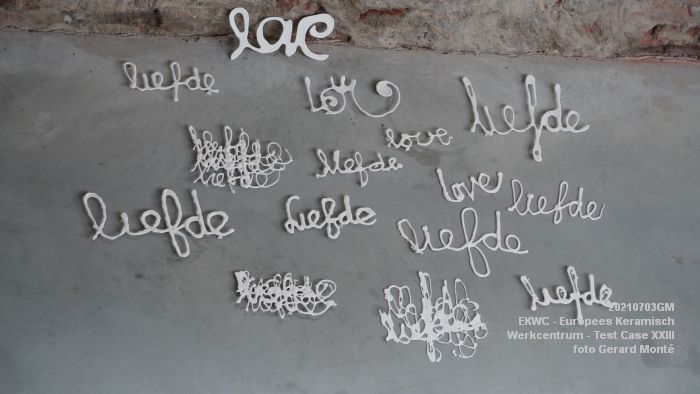 love
liefde
lov
liefde
love
liefde
love
liefde
liefde
liefde
liefde
liefde
20210703GM
EKWC - Europees Keramisch
Werkcentrum - Test Case XXIII
foto Gerard Monté